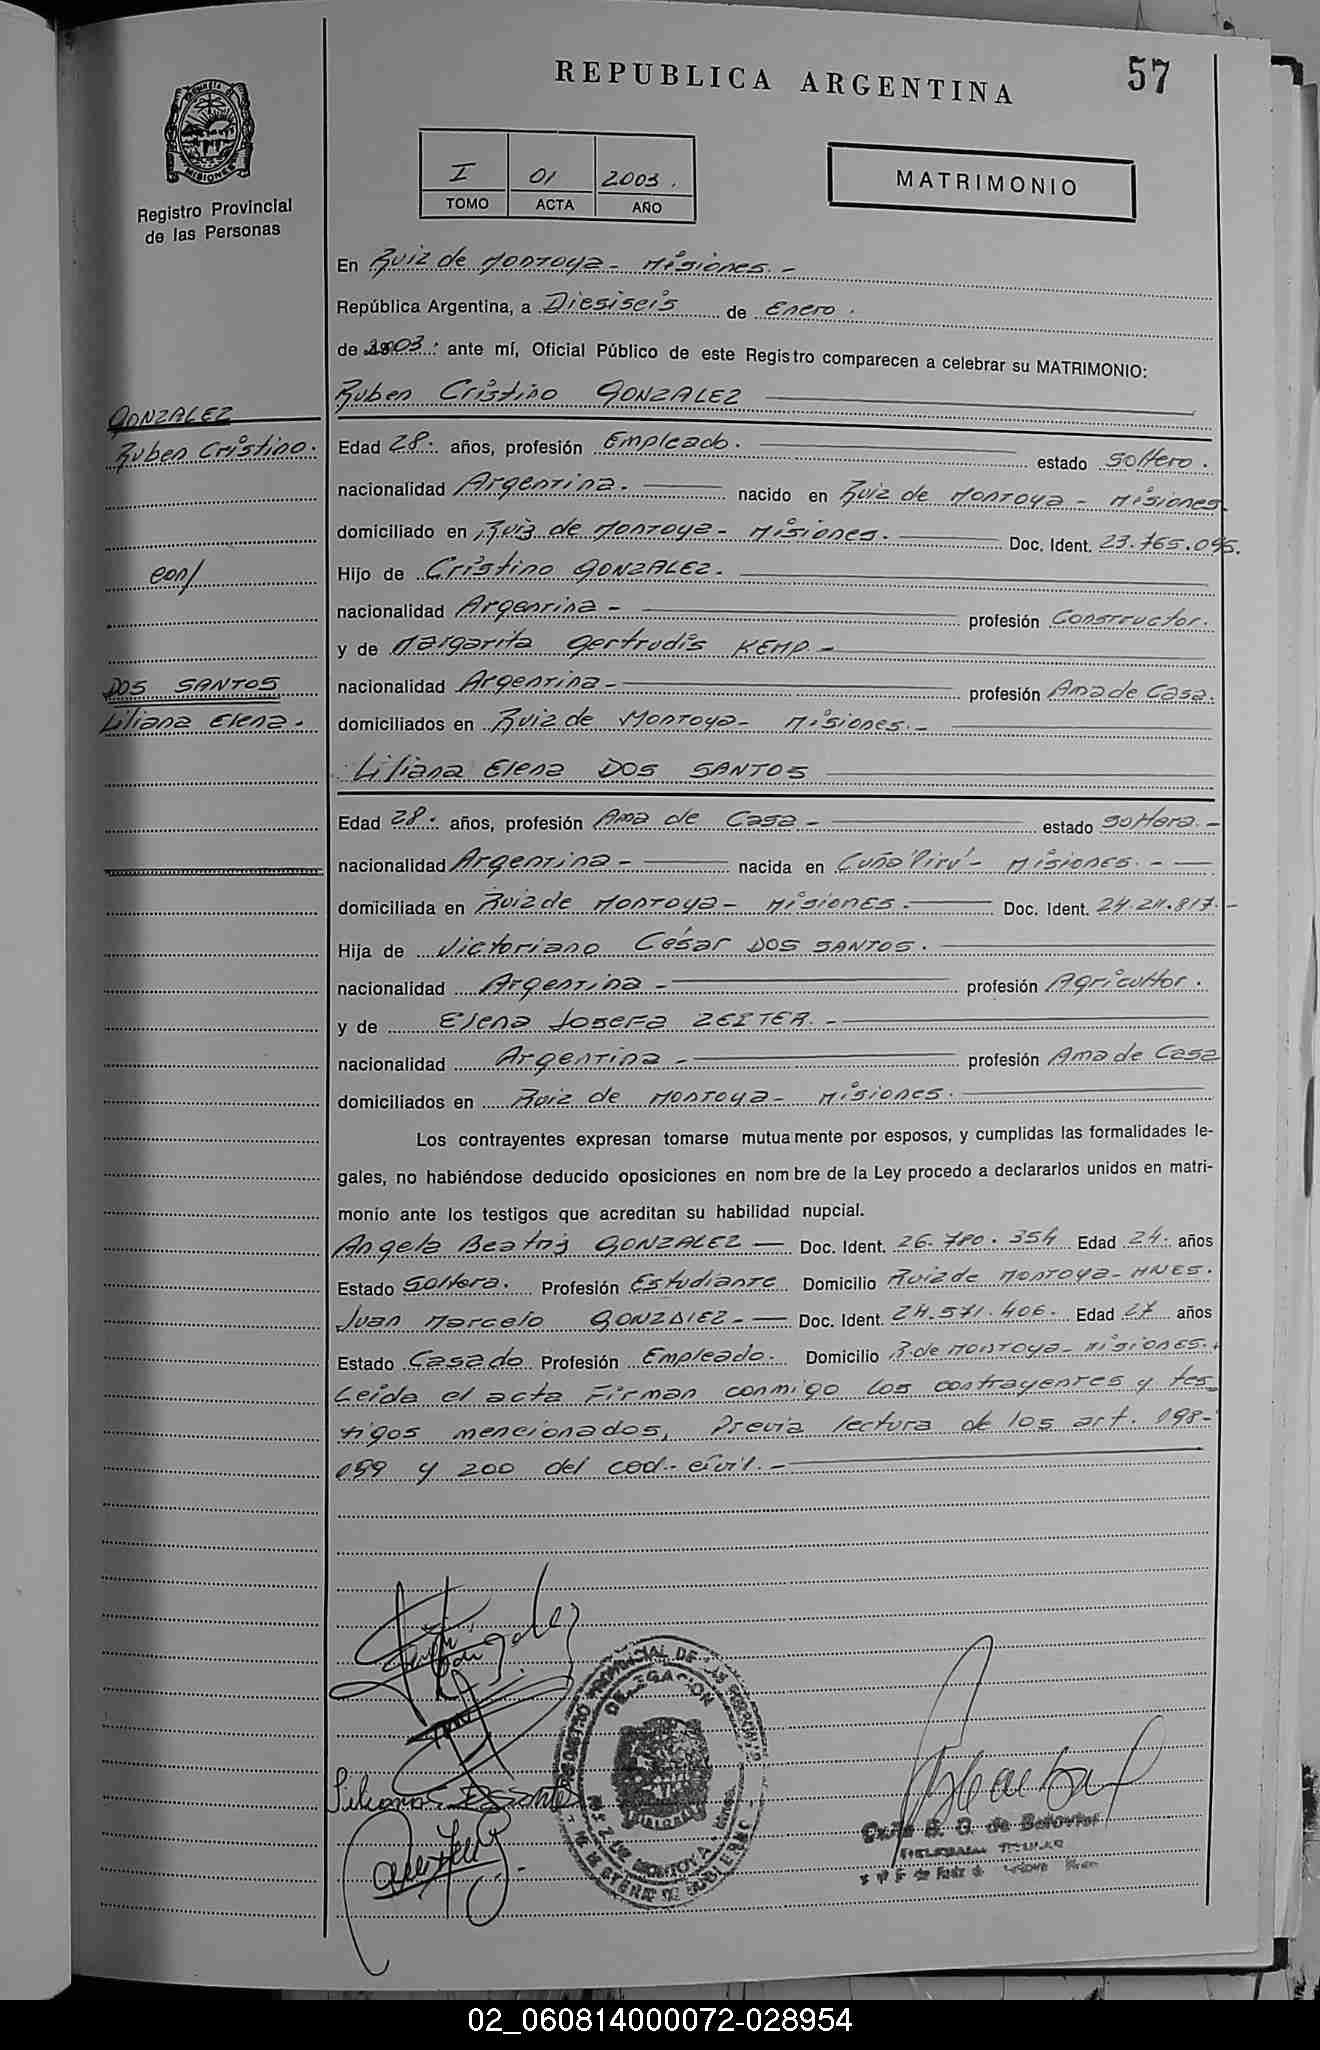 REPUBLICA ARGENTINA
57
MISIONES
Registro Provincial
de las Personas
I 01 2003.
TOMO ACTA AÑO
MATRIMONIO
En Ruiz de Montoya - Misiones. -
República Argentina, a Diesiseis de Enero.
de 2003. ante mí, Oficial Público de este Registro comparecen a celebrar su MATRIMONIO:
Ruben Cristino GONZALEZ
GONZALEZ
Ruben Cristino.
con/
DOS SANTOS
Liliana Elena.
Edad 28. años, profesión Empleado. estado soltero.
nacionalidad Argentina. nacido en Ruiz de Montoya - Misiones.
domiciliado en Ruiz de Montoya - Misiones. Doc. Ident. 23.765.095.
Hijo de Cristino GONZALEZ.
nacionalidad Argentina - profesión Constructor.
y de Margarita Gertrudis KEMP. -
nacionalidad Argentina - profesión Ama de Casa.
domiciliados en Ruiz de Montoya - Misiones. -
Liliana Elena DOS SANTOS
Edad 28. años, profesión Ama de Casa - estado soltera. -
nacionalidad Argentina - nacida en Cuña Pirú - Misiones. -
domiciliada en Ruiz de Montoya - Misiones. Doc. Ident. 24.211.817. -
Hija de Victoriano César DOS SANTOS.
nacionalidad Argentina - profesión Agricultor.
y de Elena Josefa ZEITER. -
nacionalidad Argentina - profesión Ama de Casa
domiciliados en Ruiz de Montoya - Misiones.
Los contrayentes expresan tomarse mutuamente por esposos, y cumplidas las formalidades le-
gales, no habiéndose deducido oposiciones en nombre de la Ley procedo a declararlos unidos en matri-
monio ante los testigos que acreditan su habilidad nupcial.
Angela Beatriz GONZALEZ - Doc. Ident. 26.780.354 Edad 24. años
Estado Soltera. Profesión Estudiante Domicilio Ruiz de Montoya - MNES.
Juan Marcelo GONZALEZ - Doc. Ident. 24.571.406. Edad 27 años
Estado Casado Profesión Empleado. Domicilio R. de Montoya - Misiones.
Leída el acta Firman conmigo los contrayentes y tes-
tigos mencionados, Previa lectura de los art. 198-
199 y 200 del cod. civil. -
REGISTRO PROVINCIAL DE LAS PERSONAS
DELEGACION
RUIZ DE MONTOYA
MINISTERIO DE GOBIERNO
02_060814000072-028954